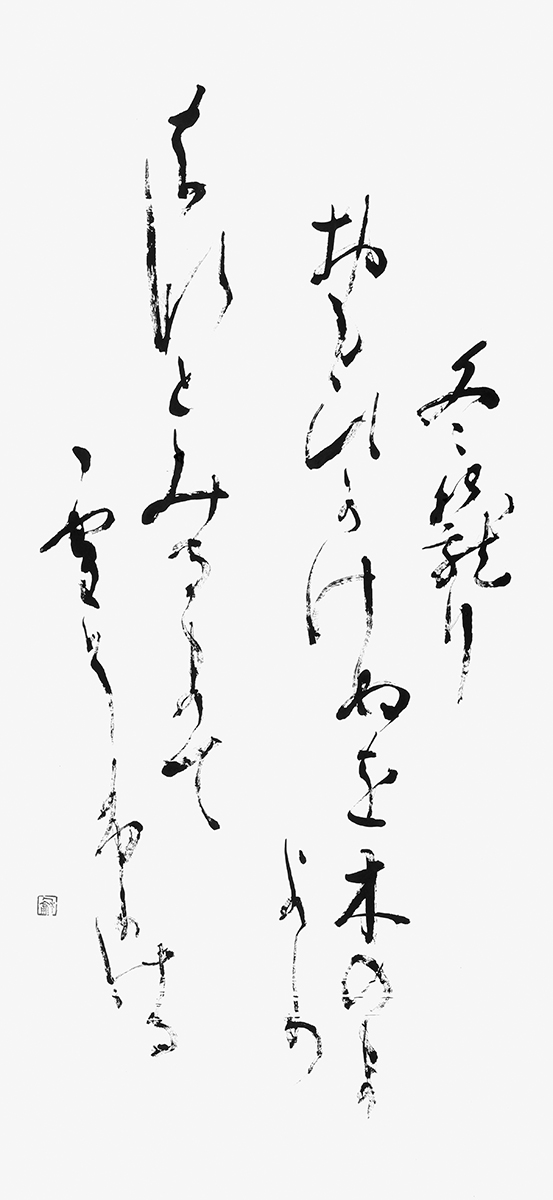 冬こも里
おもひかけぬを木のま
より
はなとみるまて
雪そふりける